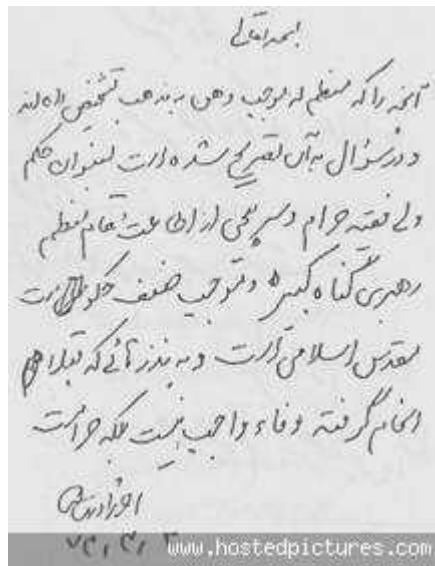 بسمه تعالی
آنچه را که معظم له موجب وهن به مذهب تشخیص داده اند
و در سؤال به آن تصریح شده است بعنوان حکم
ولی فقیه حرام و سرپیچی از اطاعت مقام معظم
رهبری گناه کبیره و موجب ضعف حکومت
مقدس اسلامی است و به نذرهائی که قبلا هم
انجام گرفته وفاء واجب نیست بلکه حرام است
۷۳،۳،۳
www.hostedpictures.com